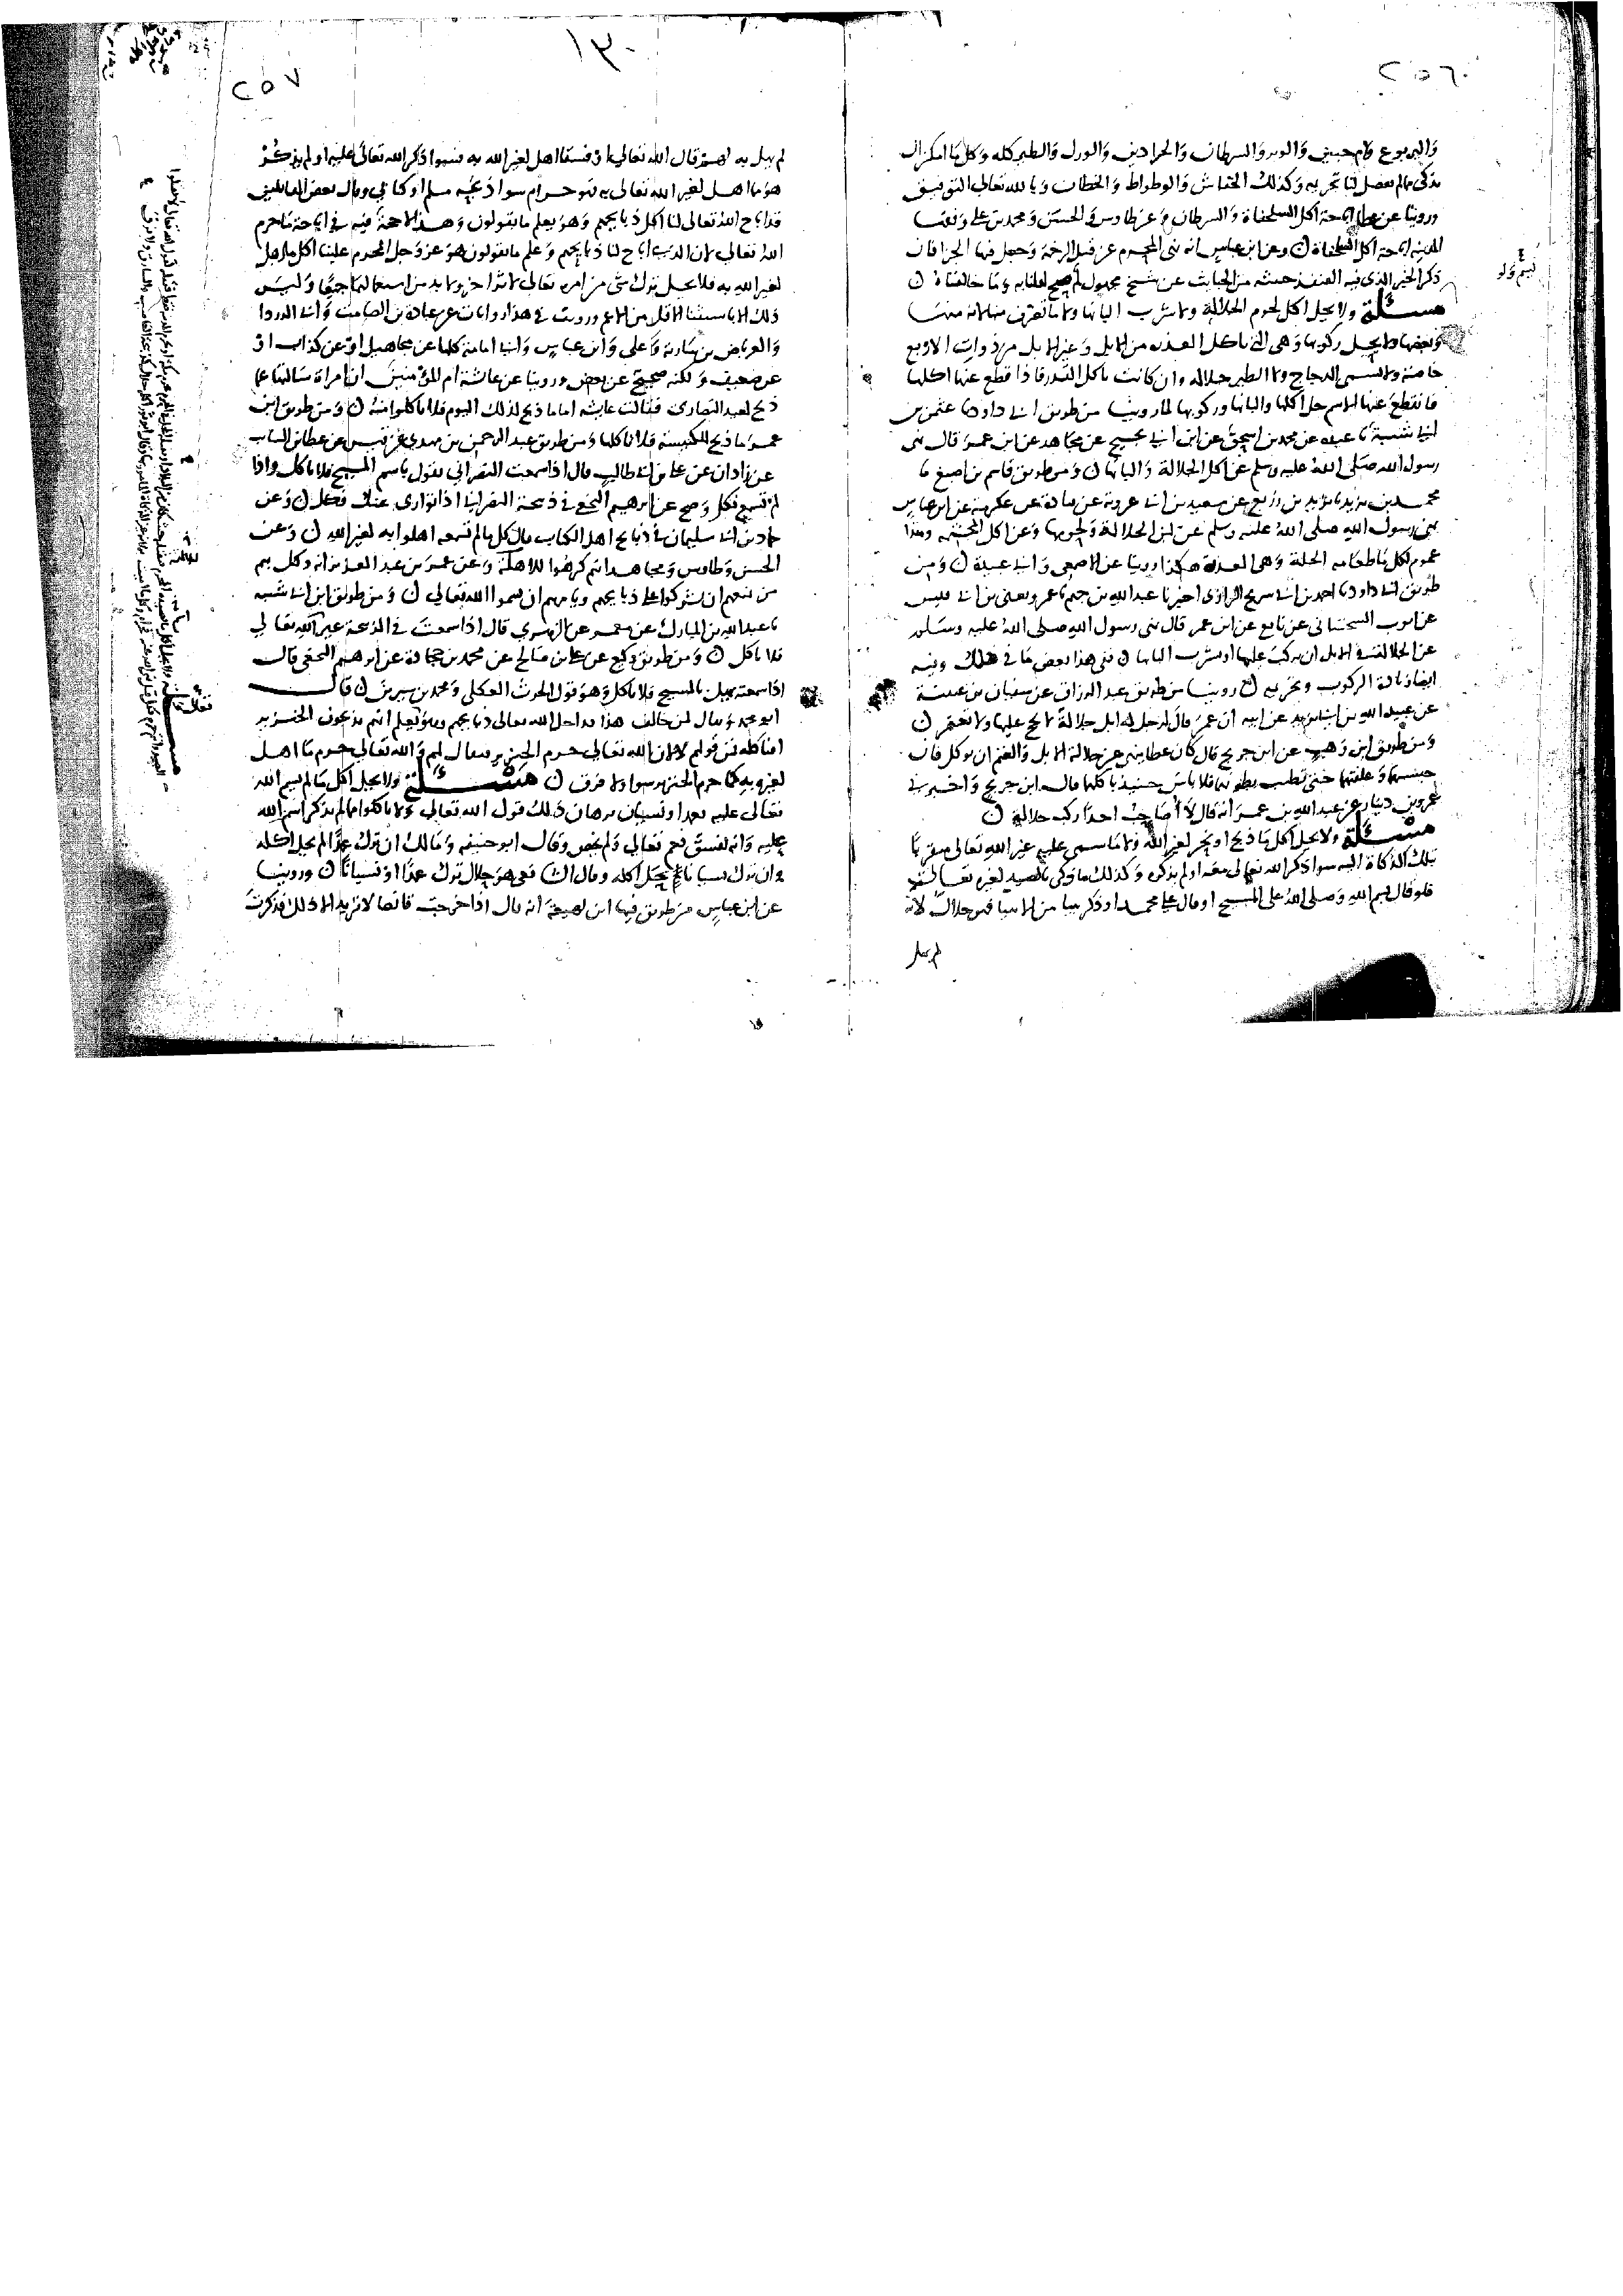 ٢٥٦
واليربوع وام حبين والوبر والسرطان والجراذين والورل والطير كله وكل ما امكن ان
يذكى مالم يفصل لنا تحريمه وكذلك الخفاش والوطواط والخطاف وبالله تعالى التوفيق
وروينا عن عطا اباحة اكل السلحفاة والسرطان وعن طاوس والحسن ومحمد بن علي وفقها
المدينة اباحة اكل السلحفاة وعن ابن عباس انه نهى المحرم عن قتل الرخمة وجعل فيها الجزا فان
ذكر الخبر الذي فيه القنفذ خبيثة من الخبايث عن شيخ مجهول لم يصح لقلنا به وما خالفناه
مسئلة ولا يحل اكل لحوم الجلالة ولا شرب البانها ولا ما تصرف منها لانه منها
وبعضها ولا يحل ركوبها وهي التي تاكل العذرة من الابل وغير الابل من ذوات الاربع
خاصة ولا يسمى الدجاج ولا الطير جلالة وان كانت تاكل القذر فاذا قطع عنها اكلها
فانقطع عنها الاسم حل اكلها والبانها وركوبها لما روينا من طريق ابي داود نا عثمن بن
ابي شيبة نا عبدة عن محمد بن اسحق عن ابن ابي نجيح عن مجاهد عن ابن عمر قال نهى
رسول الله صلى الله عليه وسلم عن اكل الجلالة والبانها ومن طريق قاسم بن اصبغ نا
محمد بن يزيد نا يزيد بن زريع عن سعيد بن ابي عروبة عن قتادة عن عكرمة عن ابن عباس
نهى رسول الله صلى الله عليه وسلم عن لبن الجلالة ولحومها وعن اكل المجثمة وهذا
عموم لكل ما طعامه الجلة وهي العذرة هكذا روينا عن الاصمعي وابي عبيد ومن
طريق ابي داود نا احمد بن ابي سريج الرازي اخبرنا عبد الله بن جهم نا عمرو يعني بن ابي قيس
عن ايوب السختياني عن نافع عن ابن عمر قال نهى رسول الله صلى الله عليه وسلم
عن الجلالة في الابل ان يركب عليها او يشرب البانها ففي هذا بعض ما في ذلك وفيه
ايضا زيادة الركوب وتحريمه روينا من طريق عبد الرزاق عن سفيان بن عيينة
عن عبيد الله بن ابي يزيد عن ابيه ان عمر قال لرجل له ابل جلالة لا تحج عليها ولا تعتمر
ومن طريق ابن وهب عن ابن جريج قال كان عطا ينهى عن جلالة الابل والغنم ان توكل فان
حبستها وعلفتها حتى تطيب بطونها فلا باس حينئذ باكلها قال ابن جريج واخبرني
عمرو بن دينار عن عبد الله بن عمر انه قال لا اصاحب احدا ركب جلالة
مسئلة ولا يحل اكل ما ذبح او نحر لغير الله ولا ما سمى عليه غير الله تعالى متقربا
بتلك الذكاة اليه سوا ذكر الله تعالى معه او لم يذكره وكذلك ما ذكي بالصيد لغيره تعالى
فلو قال بسم الله وصلى الله على المسيح او قال على محمد او ذكر نبيا من الانبيا فهو حلال لانه
لم يهل
١٣٠
٢٥٧
لم يهل به لهم قال الله تعالى او فسقا اهل لغير الله به فسوا ذكر الله تعالى عليه او لم يذكر
هو مما اهل لغير الله تعالى به فهو حرام سوا ذبحه مسلم او كتابي وقال بعض القائلين
قد اباح الله تعالى لنا اكل ذبايحهم وهو يعلم ما يقولون وهذا لا حجة فيه في اباحة ما حرم
الله تعالى لان الذي اباح لنا ذبايحهم وعلم ما يقولون هو عز وجل المحرم علينا اكل ما اهل
لغير الله به فلا يحل ترك شي من امره تعالى لاخر ولا بد من استعمالهما جميعا وليس
ذلك الا باستثنا الاقل من الاعم ورويت في هذا روايات عن عبادة بن الصامت وابي الدردا
والعرباض بن سارية وعلي وابن عباس وابي امامة كلها عن مجاهيل او عن كذاب او
عن ضعيف ولكنه صحيح عن بعض وروينا عن عائشة ام المؤمنين ان امراة سالتها عما
ذبح لعيد النصارى فقالت عايشة اما ما ذبح لذلك اليوم فلا تاكلوا منه ومن طريق ابن
عمر ما ذبح للكنيسة فلا تاكلها ومن طريق عبد الرحمن بن مهدي عن قيس عن عطا بن السايب
عن زاذان عن علي بن ابي طالب قال اذا سمعت النصراني يقول باسم المسيح فلا تاكل واذا
لم تسمع فكل وصح عن ابرهيم النخعي في ذبيحة النصراني اذا توارى عنك فكل وعن
حماد بن ابي سليمان في ذبايح اهل الكتاب قال كل ما لم تسمعه اهلوا به لغير الله وعن
الحسن وطاوس ومجاهد انهم كرهوا للالهة وعن عمر بن عبد العزيز انه وكل بهم
من يمنعهم ان يشركوا على ذبايحهم ويامرهم ان يسموا الله تعالى ومن طريق ابن ابي شيبة
نا عبد الله بن المبارك عن معمر عن الزهري قال اذا سمعت في الذبيحة غير الله تعالى
فلا تاكل ومن طريق وكيع عن علي بن صالح عن محمد بن جحادة عن ابرهيم النخعي قال
اذا سمعته يهل بالمسيح فلا تاكل وهو قول الحرث العكلي ومحمد بن سيرين قال
ابو محمد ويقال لمن خالف هذا قد احل الله تعالى ذبايحهم وهو يعلم انهم يذبحون الخنزير
افناكله فمن قولهم لا لان الله تعالى حرم الخنزير فيقال لهم والله تعالى حرم ما اهل
لغيره به كما حرم الخنزير سوا ولا فرق مسئلة ولا يحل اكل ما لم يسم الله
تعالى عليه بعمد او نسيان برهان ذلك قول الله تعالى ولا تاكلوا مما لم يذكر اسم الله
عليه وانه لفسق فعم تعالى ولم يخص وقال ابو حنيفة ومالك ان ترك عمدا لم يحل اكله
وان ترك نسيانا حل اكله وقال الشافعي هو حلال ترك عمدا او نسيانا وروينا
عن ابن عباس من طريق فيها ابن لهيعة انه قال اذا خرجت قانصا لا تريد الا ذلك فذكرت